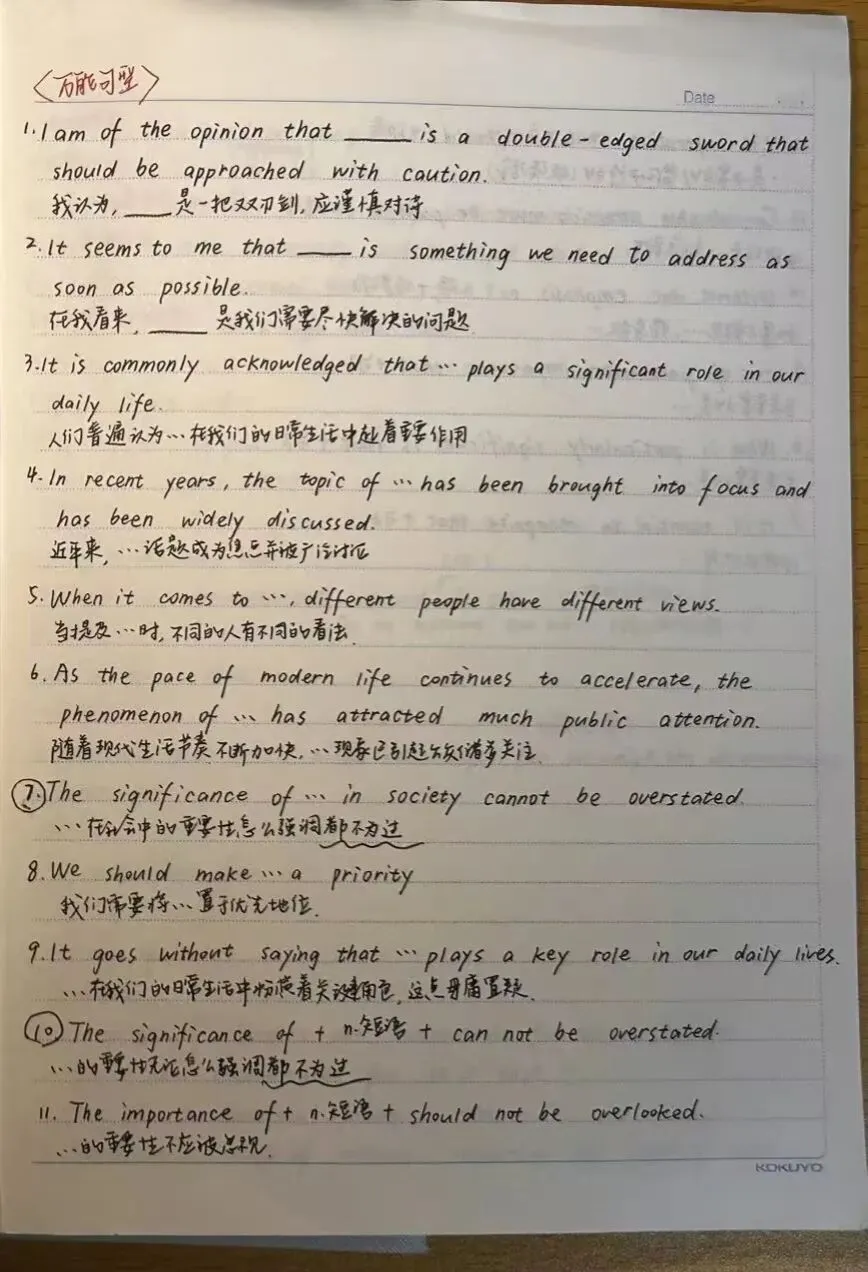 〈万能句型〉
Date
1. I am of the opinion that ______ is a double-edged sword that
should be approached with caution.
我认为, ____ 是一把双刃剑, 应谨慎对待
2. It seems to me that ____ is something we need to address as
soon as possible.
在我看来, ____ 是我们需要尽快解决的问题.
3. It is commonly acknowledged that … plays a significant role in our
daily life.
人们普遍认为…在我们的日常生活中起着重要作用
4. In recent years, the topic of … has been brought into focus and
has been widely discussed.
近年来, …话题成为焦点并被广泛讨论
5. When it comes to …, different people have different views.
当提及…时, 不同的人有不同的看法.
6. As the pace of modern life continues to accelerate, the
phenomenon of … has attracted much public attention.
随着现代生活节奏不断加快, …现象已引起公众诸多关注.
⑦. The significance of … in society cannot be overstated.
…在社会中的重要性怎么强调都不为过
8. We should make … a priority
我们需要将…置于优先地位.
9. It goes without saying that … plays a key role in our daily lives.
…在我们的日常生活中扮演着关键角色, 这点毋庸置疑.
⑩ The significance of + n.短语 + can not be overstated.
…的重要性无论怎么强调都不为过
11. The importance of + n.短语 + should not be overlooked.
…的重要性不应被忽视.
KOKUYO